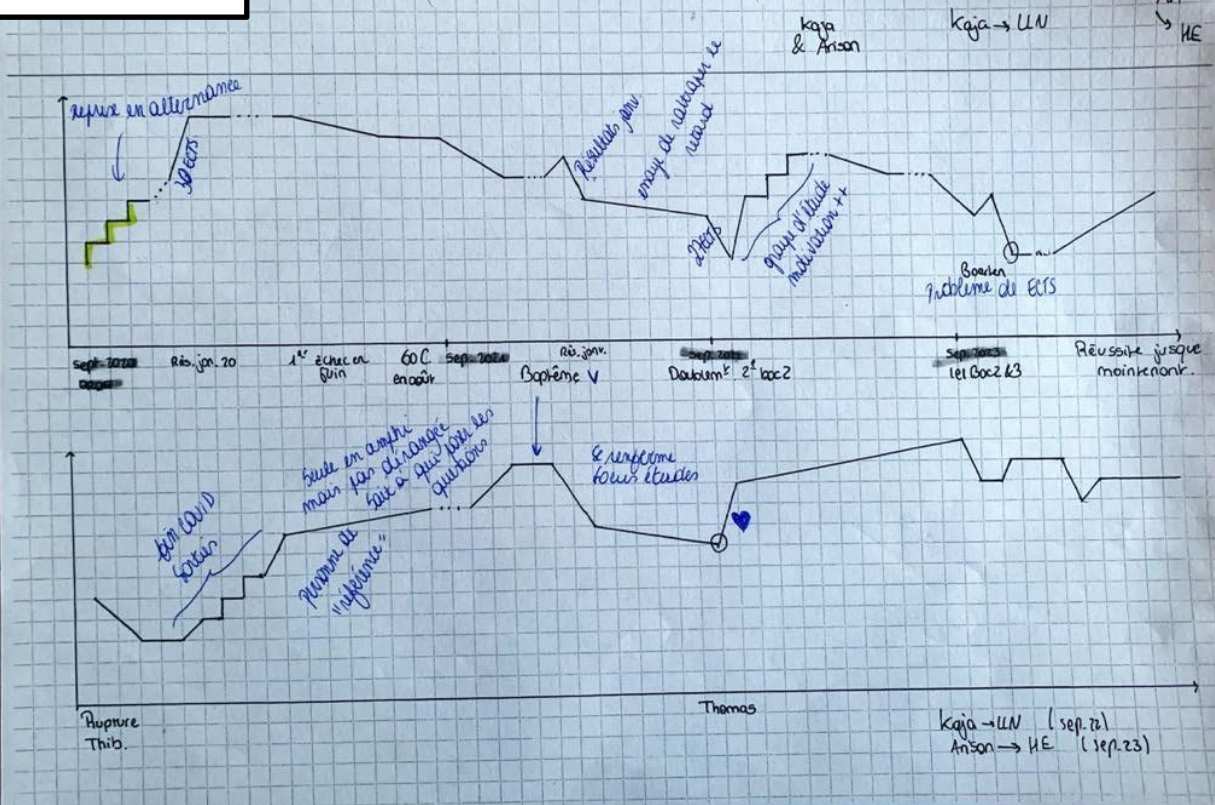 Kaja
& Anson
Kaja → LLN
HE
reprise en alternance
30 ECTS
Résultats janv.
essaye de rattraper le
retard
27 ECTS
groupe d'étude
motivation ++
Boarlen
Problème de ECTS
Sept. 2020
Rés. jan. 20
1er échec en
Juin
60 C.
en août
Sep. 2021
Rés. janv.
Baptême V
Doublemt 2e bac 2
Sep. 2023
1er Bac 2 & 3
Réussite jusque
maintenant.
fin COVID
sorties
Seule en amphi
mais pas dérangée
sait à qui poser les
questions
personne de
"référence"
Se renferme
focus études
Rupture
Thib.
Thomas
Kaja → LLN (sep. 22)
Anson → HE (sep. 23)